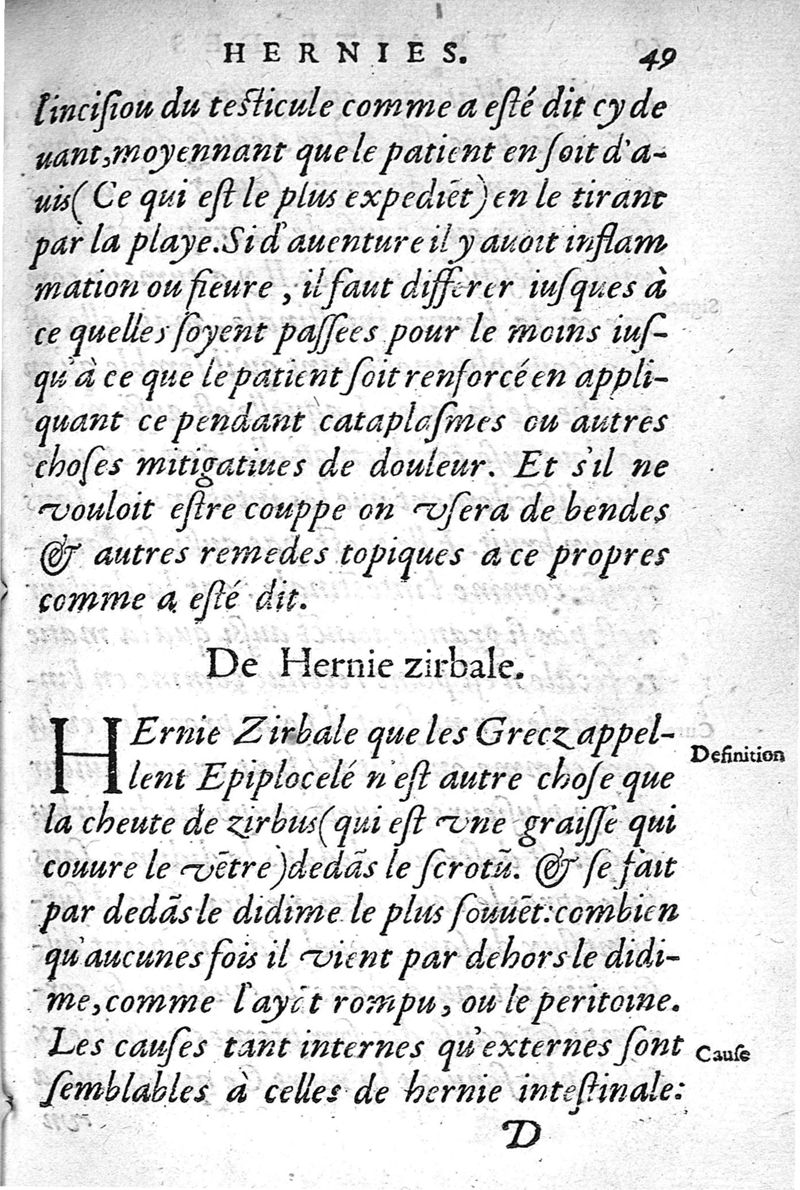 HERNIES. 49
l'incisiou du testicule comme a esté dit cy de
uant,moyennant que le patient en soit d'a-
uis( Ce qui est le plus expediẽt) en le tirant
par la playe. Si d'auenture il y auoit inflam
mation ou fieure , il faut differer iusques à
ce quelles soyent passees pour le moins ius-
qu'à ce que le patient soit renforcé en appli-
quant ce pendant cataplasmes ou autres
choses mitigatiues de douleur. Et s'il ne
vouloit estre couppe on vsera de bendes
& autres remedes topiques a ce propres
comme a esté dit.
De Hernie zirbale.
HErnie Zirbale que les Grecz appel-
lent Epiplocelé n'est autre chose que
Definition
la cheute de zirbus(qui est vne graisse qui
couure le vẽtre)dedãs le scrotũ. & se fait
par dedãs le didime le plus souuẽt:combien
qu'aucunes fois il vient par dehors le didi-
me,comme l'ayẽt rompu, ou le peritoine.
Les causes tant internes qu'externes sont
Cause
semblables à celles de hernie intestinale:
D